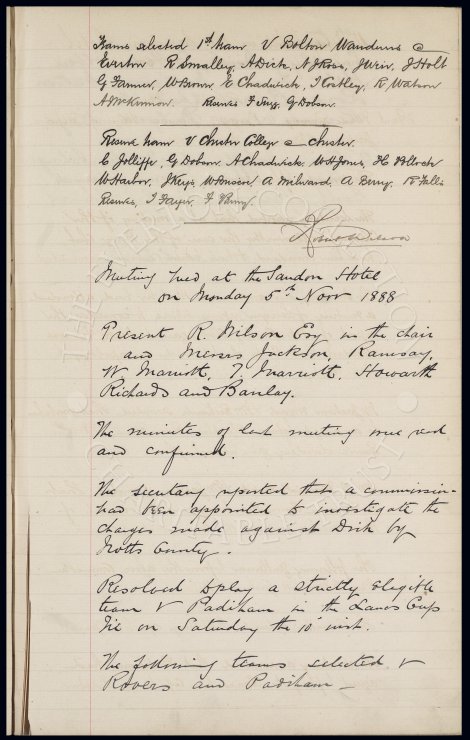 Teams selected 1st team V Bolton Wanderers @
Everton R Smalley, A Dick, N J Ross, J Weir, J Holt
G Farmer, W Brown, E Chadwick, J Costley, R Watson
A McKinnon. Reserves F Sugg, G Dobson.
Reserve team V Chester College @ Chester.
C Jolliffe, G Dobson, A Chadwick, W H Jones, H Pollock
W Harbor, J Keys, W Benson A Milward, A Berry, R Falls
Reserves, J Fayer, F Parry.
Robert Wilson
Meeting held at the Sandon Hotel
on Monday 5th Novr 1888
Present R. Wilson Esq in the chair
and Messrs Jackson, Ramsay,
W Marriott, T Marriott, Howarth
Richards and Barclay.
The minutes of last meeting were read
and confirmed.
The secretary reported that a commission
had been appointed to investigate the
charges made against Dick by
Notts County.
Resolved to play a strictly elegible
team V Padiham in the Lancs Cup
Tie on Saturday the 10 inst.
The following teams selected V
Rovers and Padiham —